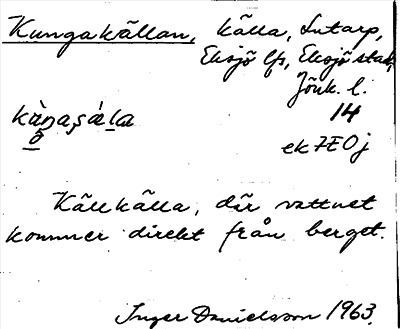 Kungakällan, källa, Intarp,
Eksjö lfs, Eksjö stad,
Jönk. l.
14
ek 7E0j
Källkälla, där vattnet
kommer direkt från berget.
Inger Danielsson 1963.